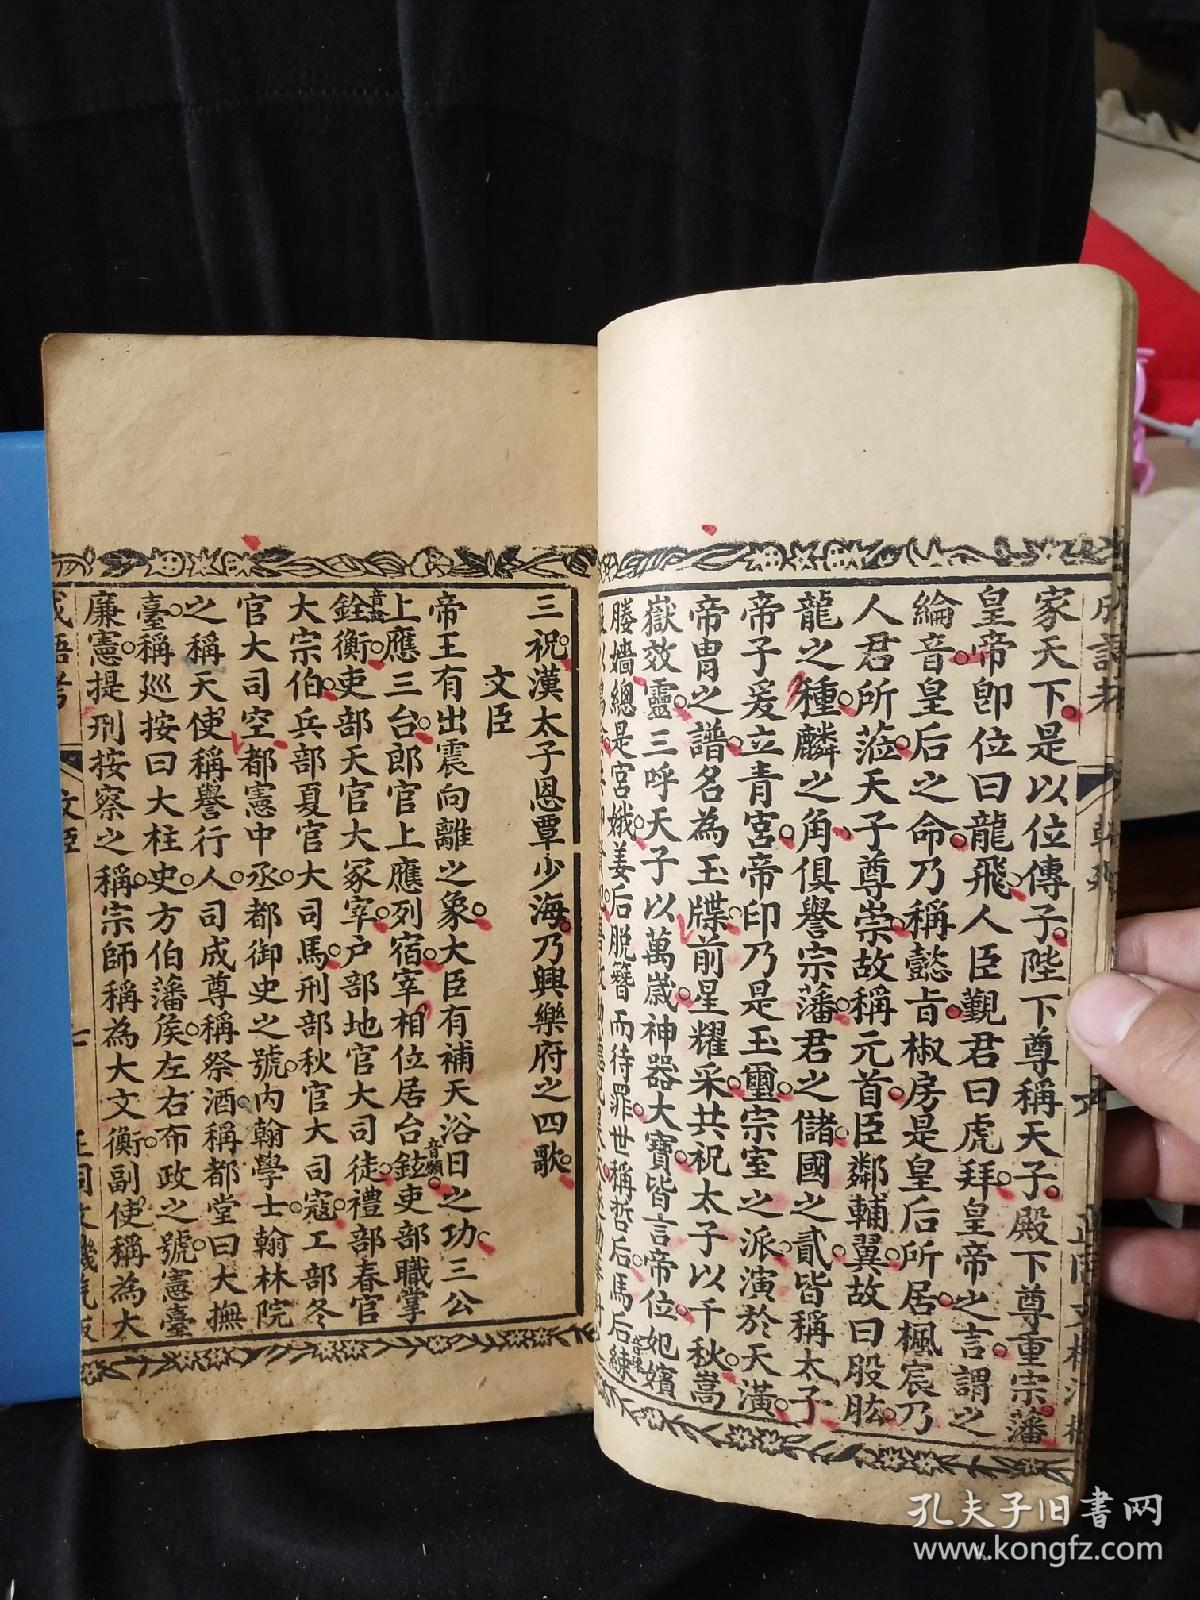 家天下是以位傳子陛下尊稱天子殿下尊重宗藩
皇帝卽位曰龍飛人臣覲君曰虎拜皇帝之言謂之
綸音皇后之命乃稱懿旨椒房是皇后所居楓宸乃
人君所蒞天子尊崇故稱元首臣鄰輔翼故曰股肱
龍之種麟之角俱譽宗藩君之儲國之貳皆稱太子
帝子爰立青宮帝印乃是玉璽宗室之派演於天潢
帝胄之譜名為玉牒前星耀采共祝太子以千秋嵩
嶽效靈三呼天子以萬歲神器大寶皆言帝位妃嬪
媵嬙總是宮娥姜后脱簪而待罪世稱哲后馬后練
三祝漢太子恩覃少海乃興樂府之四歌
文臣
帝王有出震向離之象大臣有補天浴日之功三公
上應三台郎官上應列宿宰相位居台鉉吏部職掌
銓衡吏部天官大冢宰户部地官大司徒禮部春官
大宗伯兵部夏官大司馬刑部秋官大司寇工部冬
官大司空都憲中丞都御史之號內翰學士翰林院
之稱天使稱譽行人司成尊稱祭酒稱都堂曰大撫
臺稱巡按曰大柱史方伯藩侯左右布政之號憲臺
廉憲提刑按察之稱宗師稱為大文衡副使稱為大
成語考
文臣
七
孔夫子旧书网
www.kongfz.com